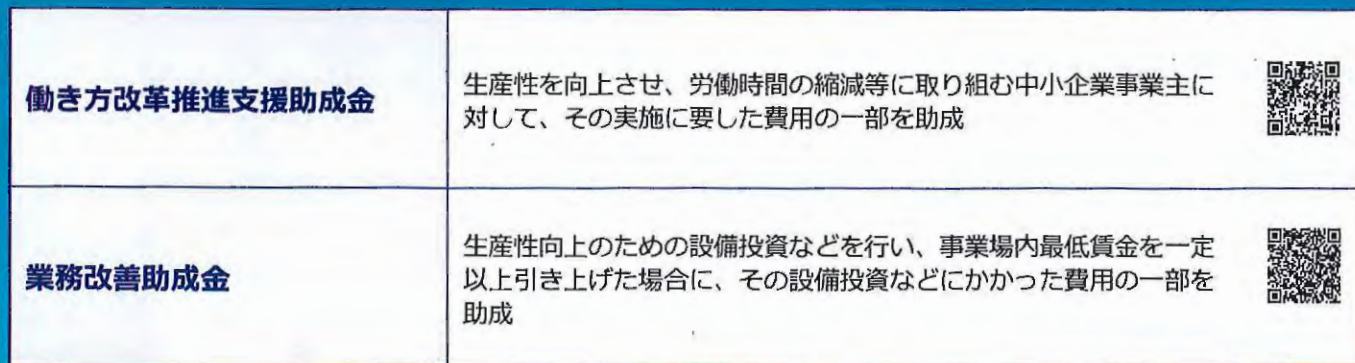 働き方改革推進支援助成金
生産性を向上させ、労働時間の縮減等に取り組む中小企業事業主に
対して、その実施に要した費用の一部を助成
業務改善助成金
生産性向上のための設備投資などを行い、事業場内最低賃金を一定
以上引き上げた場合に、その設備投資などにかかった費用の一部を
助成